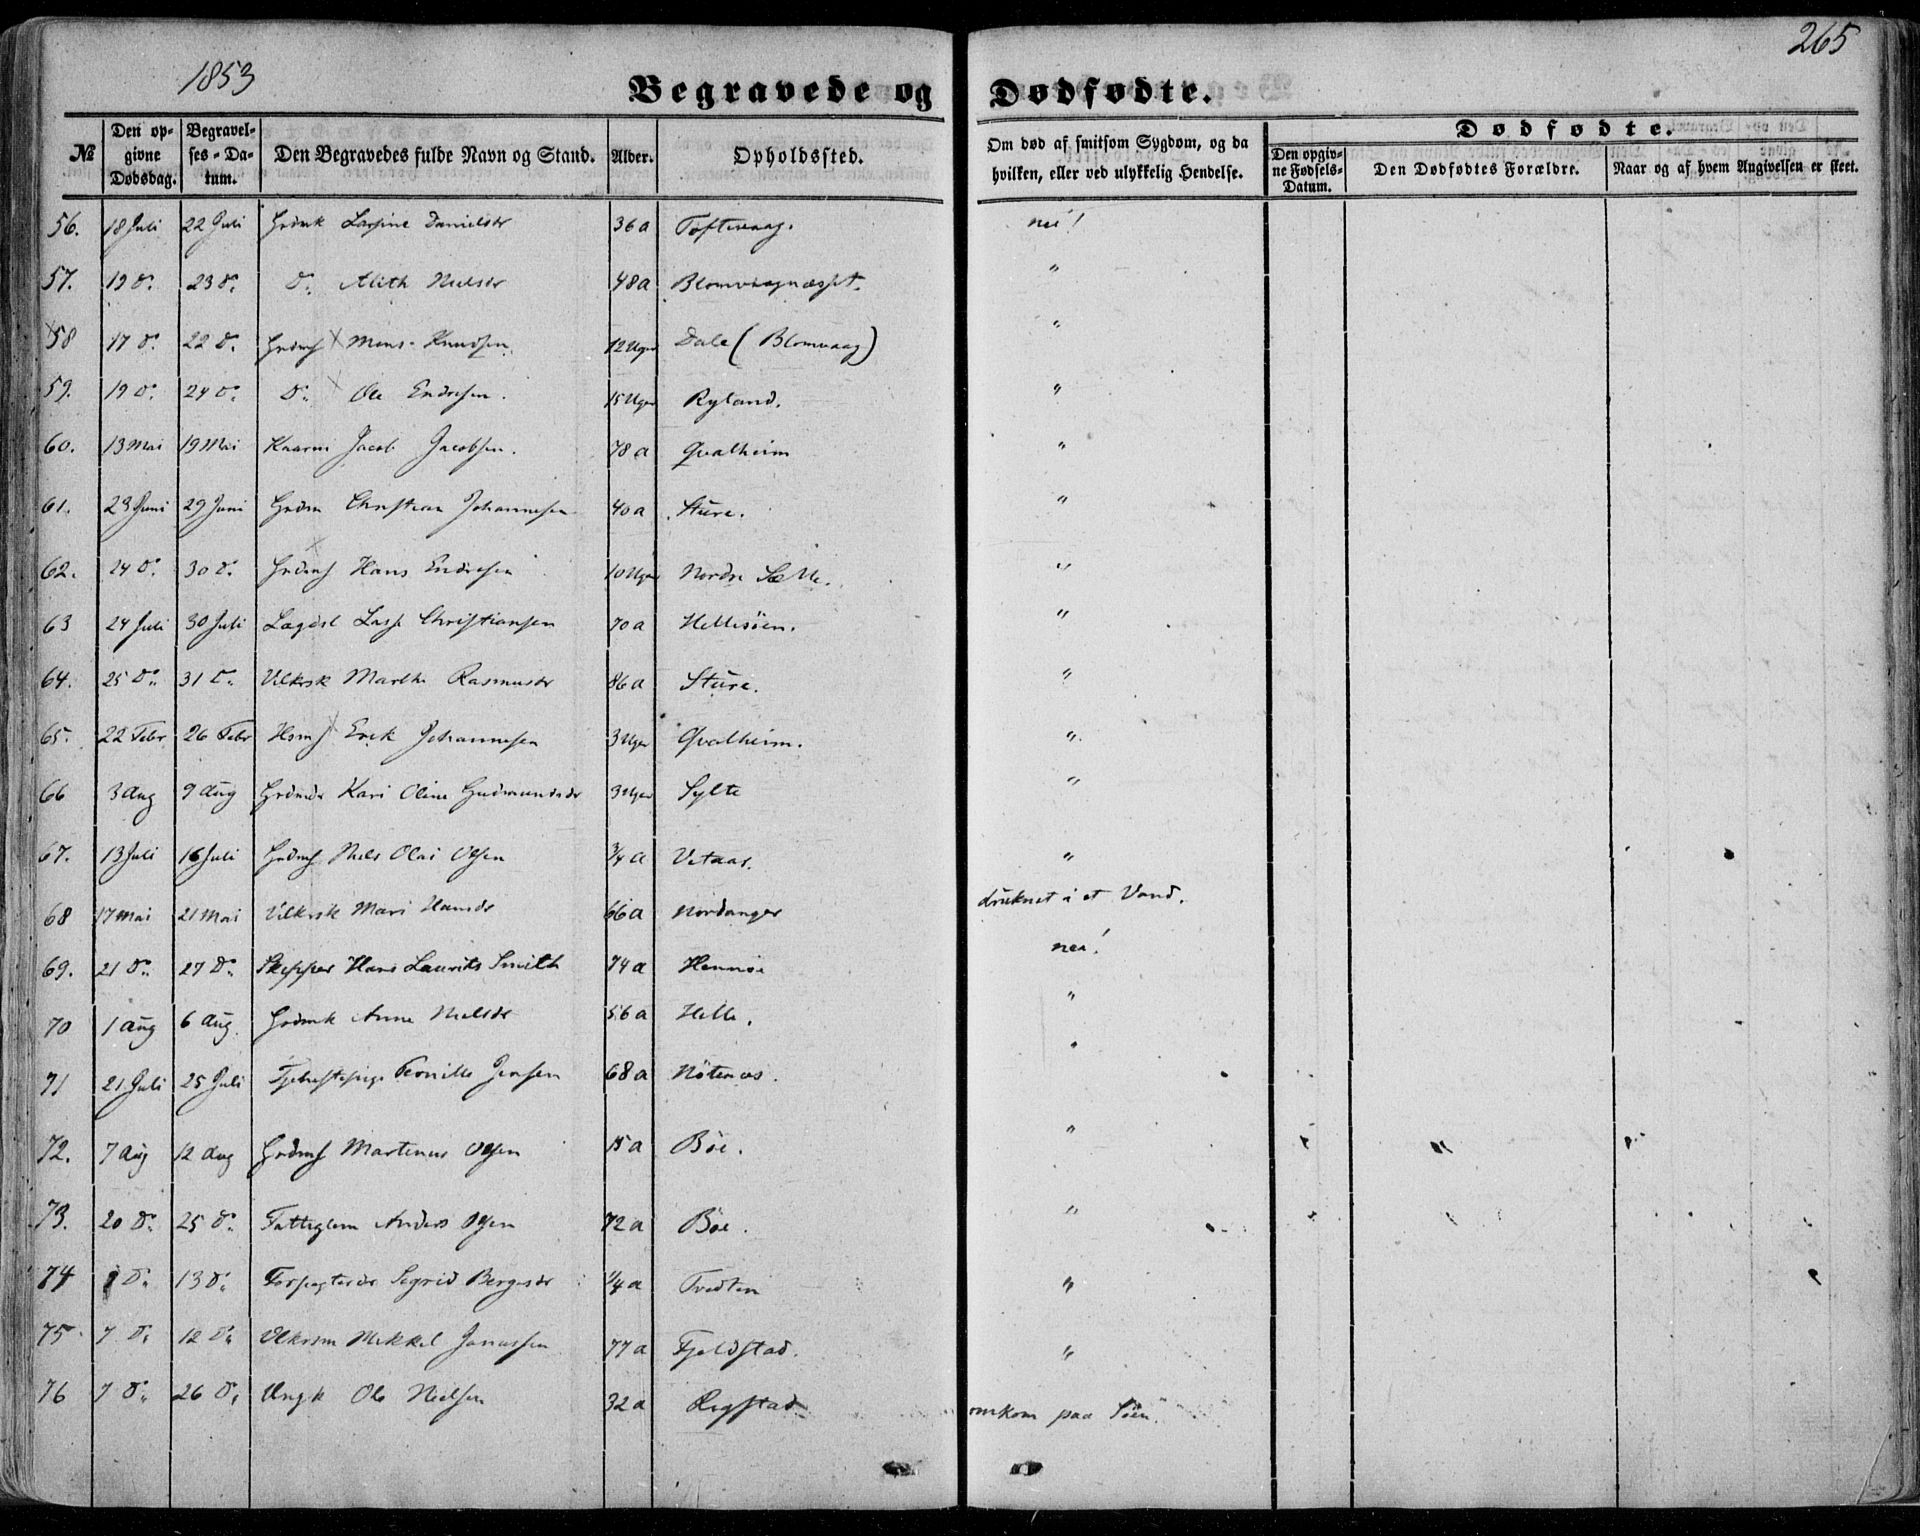 1853
265
Begravede og Dødfødte.
№ Den opgivne Dødsdag. Begravelses-Datum. Den Begravedes fulde Navn og Stand. Alder. Opholdssted. Om død af smitsom Sygdom, og da hvilken, eller ved ulykkelig Hendelse. Dødfødte. Den opgivne Fødsels-Datum. Den Dødfødtes Forældre. Naar og af hvem Angivelsen er skeet.
56. 18 Juli 22 Juli Grdmk Larsine Danielsdr 36 a Toftevaag. nei!
57. 19 do. 23 do. do. Alith Nielsdr 48 a Blomvaagnæsset. "
58 17 do. 22 do. Grdms Mons Knudsen. 12 Uger Dale (Blomvaag) "
59. 19 do. 24 do. do. Ole Endresen. 15 Uger Ryland. "
60. 13 Mai 19 Mai Kaarm Jacob Jacobsen. 78 a Qvalheim "
61. 23 Juni 29 Juni Grdm Christian Johannesen 40 a Sture. "
62. 24 do. 30 do. Grdms Hans Endresen 10 Uger Nordre Sæle. "
63 24 Juli 30 Juli Lægdsl Lasse Christiansen 70 a Hellesöen. "
64. 25 do. 31 do. Vilkrsk Marthe Rasmusdr 86 a Sture. "
65. 22 Febr 26 Febr Hsms Erik Johannesen 3 Uger Qvalheim. "
66 3 Aug 9 Aug Grdmdr Kari Oline Gudmundsdr 3 Uger Sylte "
67. 13 Juli 16 Juli Grdms Niels Olai Olsen ¾ a Vetaas. "
68 17 Mai 21 Mai Vilkrsk Mari Hansdr 66 a Nordanger druknet i et Vand.
69. 21 do. 27 do. Skipper Hans Laurits Smith 74 a Hennöe nei!
70 1 Aug 6 Aug. Grdmk Anne Nielsdr 56 a Helle. "
71 21 Juli 25 Juli Pernille Jensen 68 a Nötenæs. "
72. 7 Aug 12 Aug Grdms Martinus Olsen 15 a Böe. "
73. 20 do. 25 do. Fattiglem Anders Olsen 72 a Böe. "
74 do. 13 do. Forpagterdr Sigrid Bergesdr ¼ a Tvedten "
75. 7 do. 12 do. Vlkrsm Mikkel Jonassen 77 a Fjeldstad. "
76 7 do. 26 do. Ungk Ole Nielsen 32 a Rygstad omkom paa Söen.